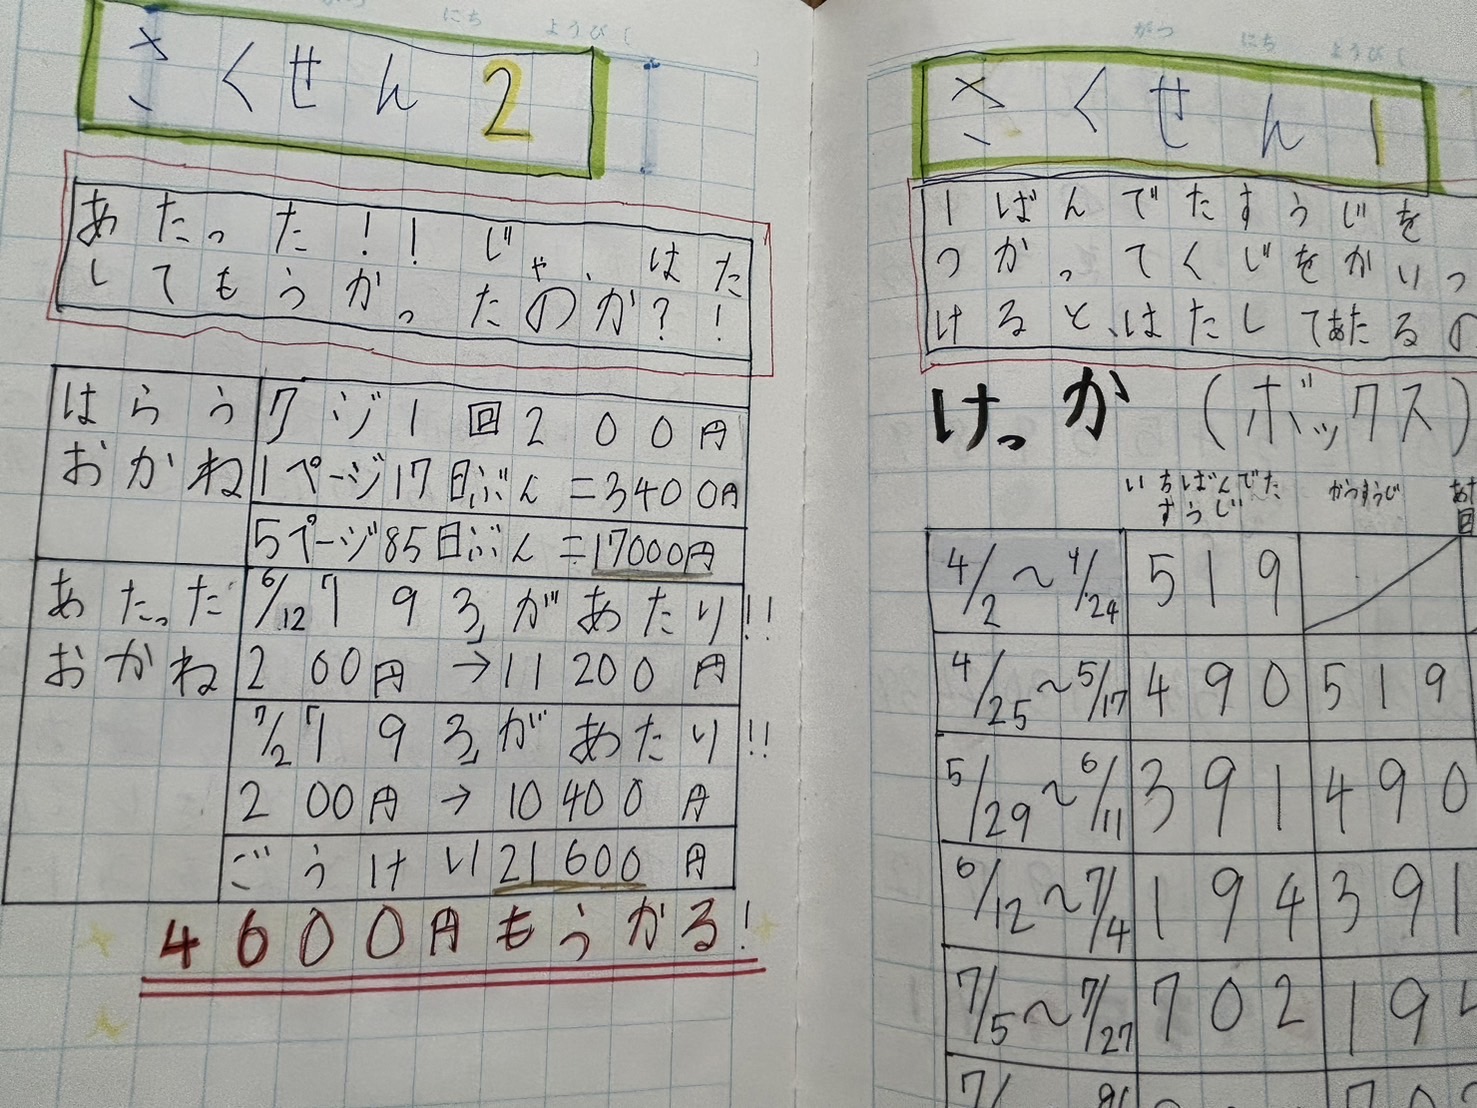 にち ようび(
さくせん2
あたった!!じゃ、はた
してもうかったのか?!
はらう
おかね
クジ1回200円
1ページ17日ぶん=3400円
5ページ85日ぶん=17000円
あたった
おかね
6/12 793があたり!!
200円→11200円
7/2 793があたり!!
200円→10400円
ごうけい21600円
4600円もうかる!
がつ にち ようび(
さくせん1
1ばんでたすうじを
つかってくじをかいつ
けると、はたしてあたるの
けっか(ボックス)
いちばんでた
すうじ
かうすうじ
4/2~4/24 519
4/25~5/17 490 519
5/29~6/11 391 490
6/12~7/4 194 391
7/5~7/27 702 19
7/